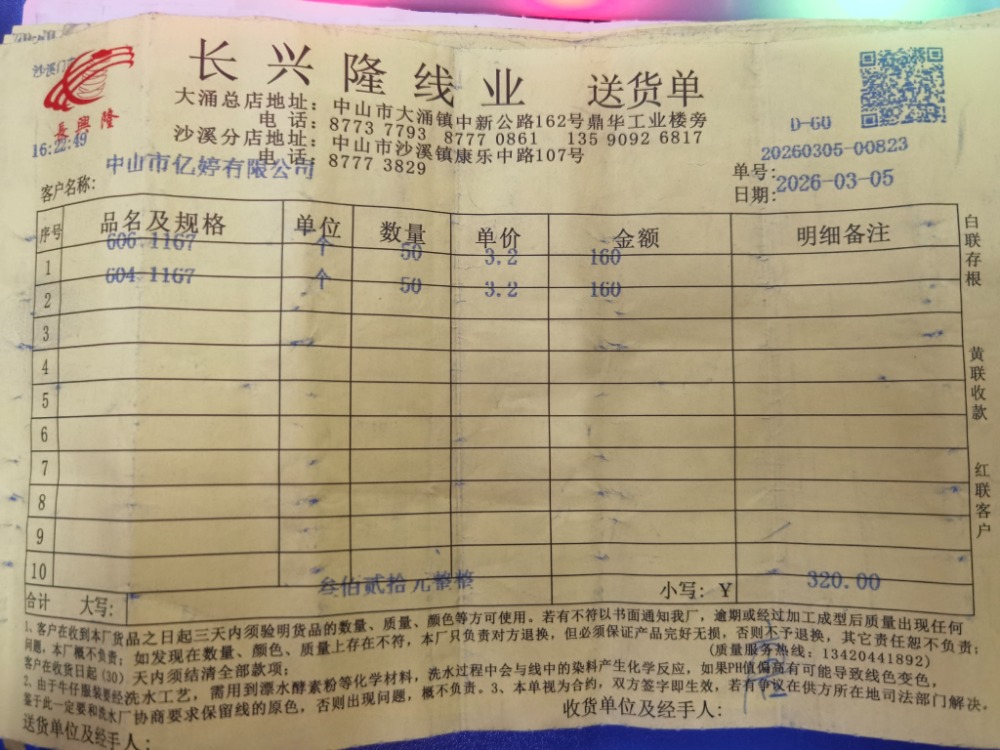 沙溪门
長興隆
16:22:49
长兴隆线业 送货单
大涌总店地址：中山市大涌镇中新公路162号鼎华工业楼旁
电话：8773 7793 8777 0861 135 9092 6817
沙溪分店地址：中山市沙溪镇康乐中路107号
电话：8777 3829
D-60
客户名称：中山市亿婷有限公司
单号：20260305-00823
日期：2026-03-05
序号 品名及规格 单位 数量 单价 金额 明细备注
1 606.1167 个 50 3.2 160
2 604.1167 个 50 3.2 160
3
4
5
6
7
8
9
10
合计 大写：叁佰贰拾元整整 小写：￥ 320.00
白联存根
黄联收款
红联客户
1、客户在收到本厂货品之日起三天内须验明货品的数量、质量、颜色等方可使用。若有不符以书面通知我厂，逾期或经过加工成型后质量出现任何
问题，本厂概不负责；如发现在数量、颜色、质量上存在不符，本厂只负责对方退换，但必须保证产品完好无损，否则不予退换，其它责任恕不负责；
客户在收货日起（30）天内须结清全部款项； （质量服务热线：13420441892）
2、由于牛仔服装要经洗水工艺，需用到漂水酵素粉等化学材料，洗水过程中会与线中的染料产生化学反应，如果PH值偏高有可能导致线色变色，
鉴于此一定要和洗水厂协商要求保留线的原色，否则出现问题，概不负责。3、本单视为合约，双方签字即生效，若有争议在供方所在地司法部门解决。
送货单位及经手人： 收货单位及经手人：